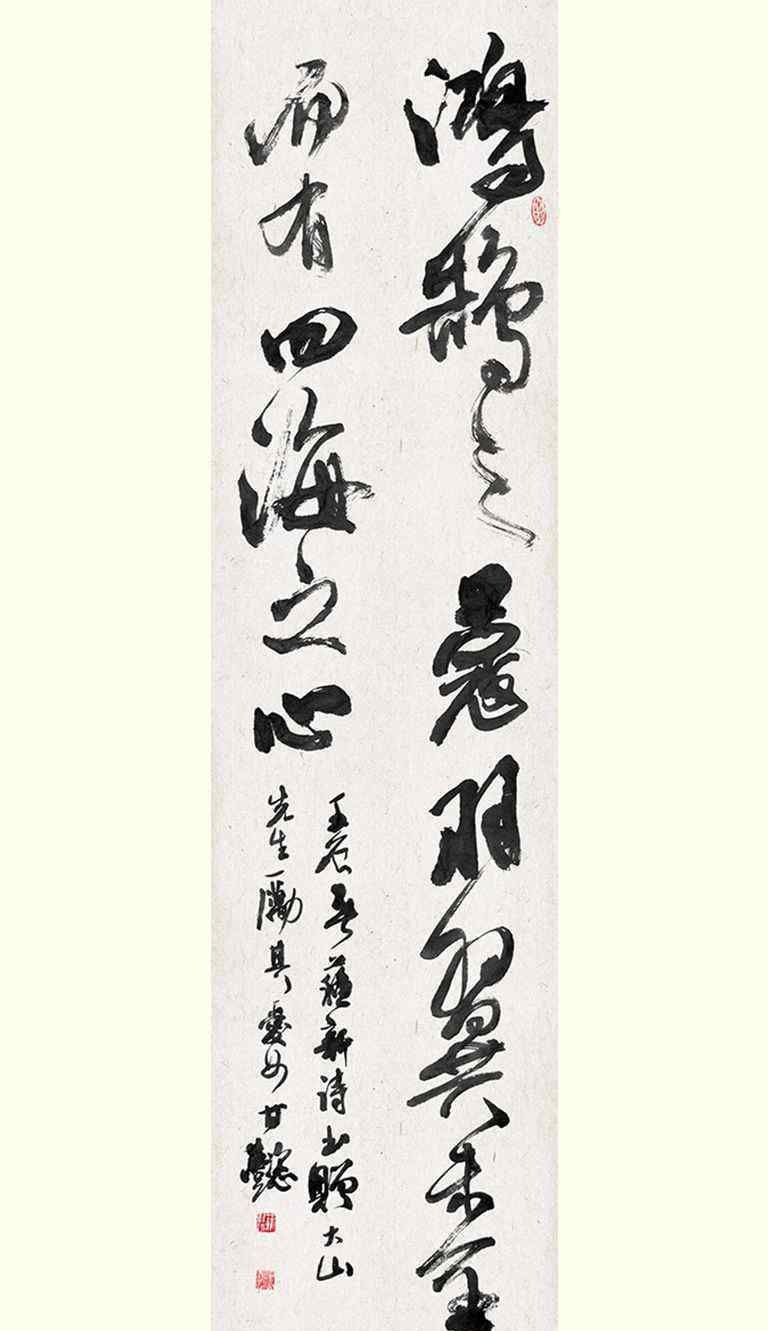 鴻鵠之羽翼未全
而有四海之心
壬辰新詩書贈大山
先生勵其愛女甘懿